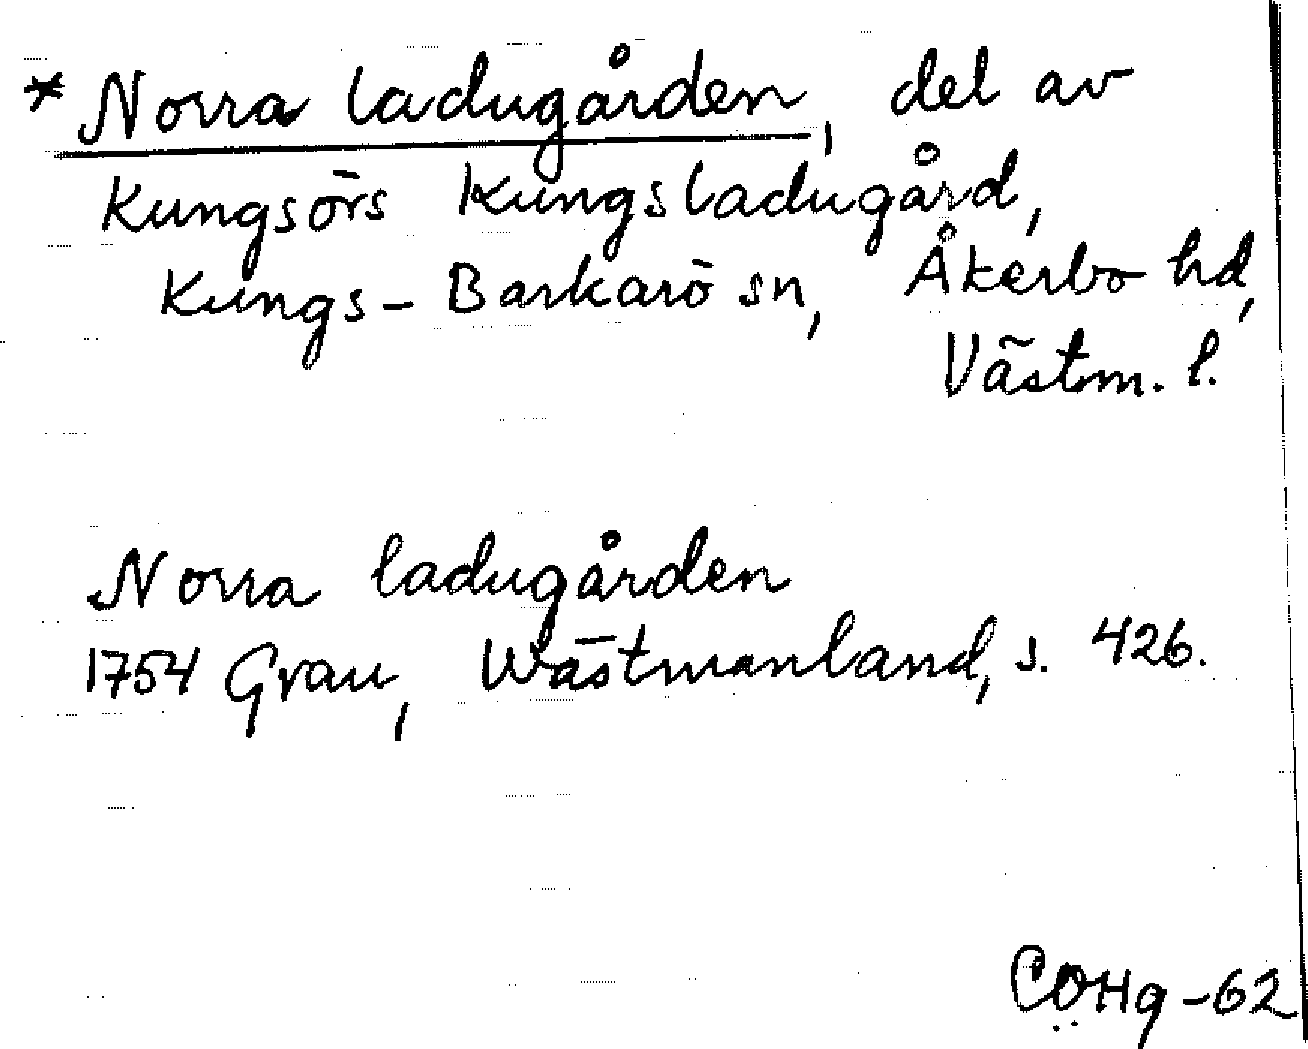 * Norra ladugården, del av
Kungsörs Kungsladugård,
Kungs-Barkarö sn, Åkerbo hd,
Västm. l.
Norra ladugården
1754 Grau, Wästmanland, s. 426.
COHg-62